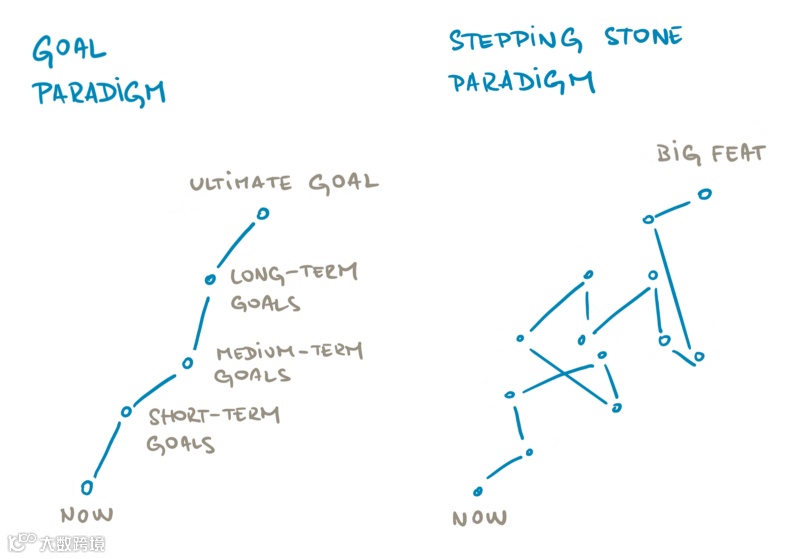 GOAL
PARADIGM
ULTIMATE GOAL
LONG-TERM
GOALS
MEDIUM-TERM
GOALS
SHORT-TERM
GOALS
NOW
STEPPING STONE
PARADIGM
BIG FEAT
NOW
大数跨境